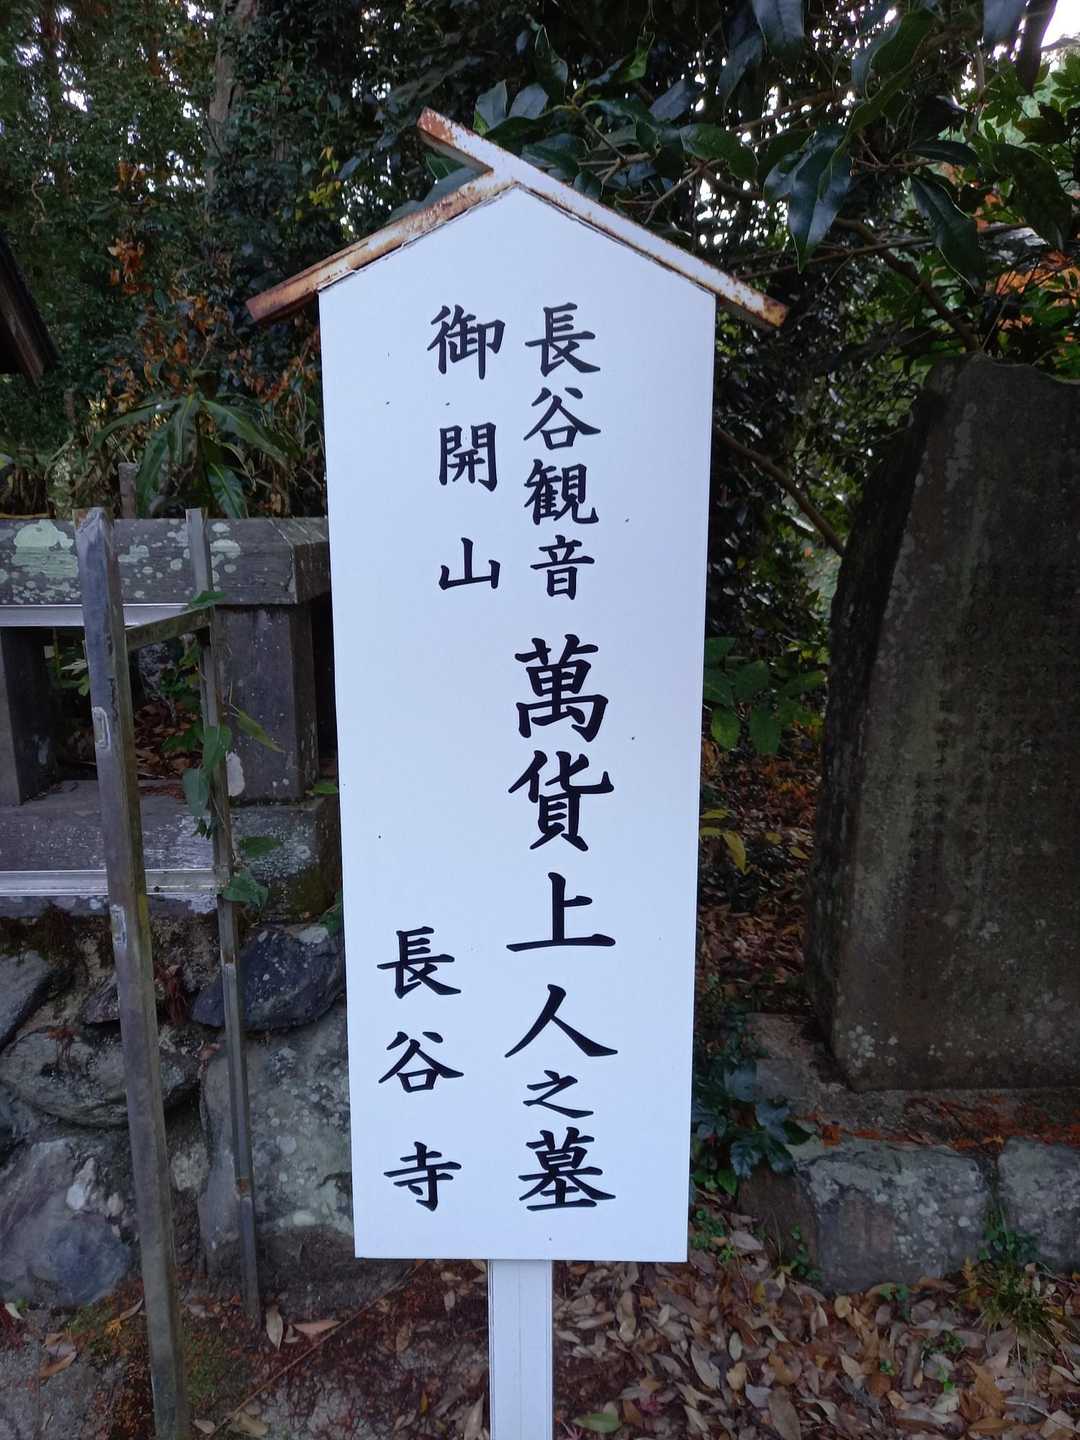 長谷観音
御開山
萬貨上人之墓
長谷寺